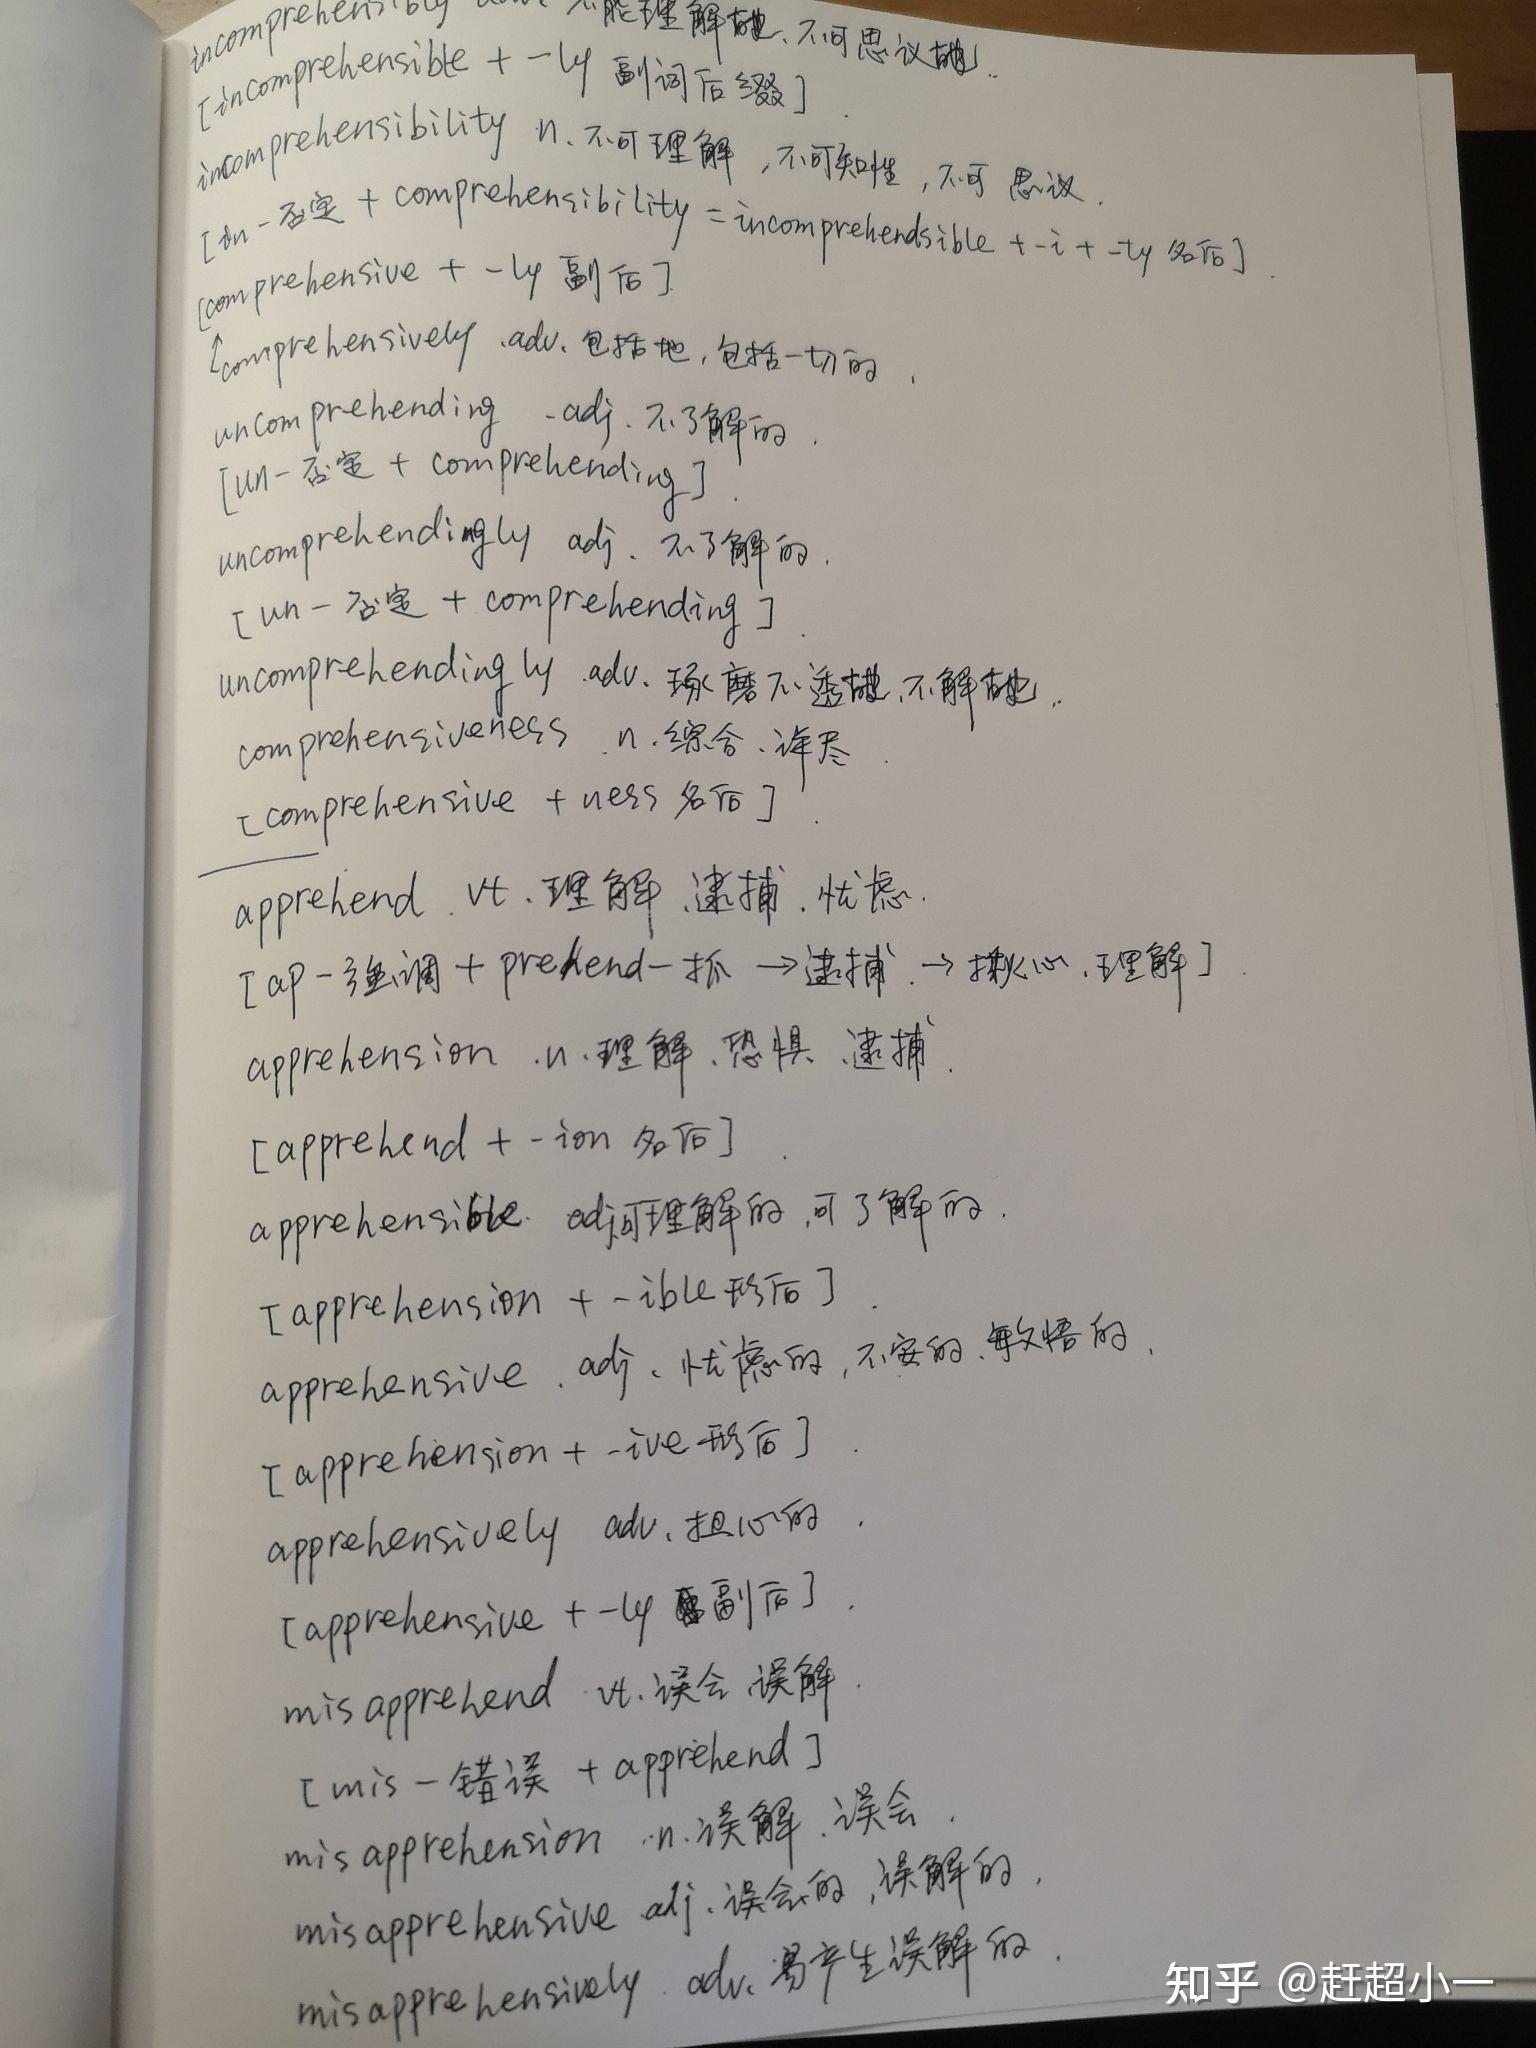 incomprehensibly adv. 不能理解地、不可思议地.
[incomprehensible + -ly 副词后缀].
incomprehensibility n. 不可理解, 不可知性, 不可思议.
[in-否定 + comprehensibility = incomprehendsible + -i + -ty 名后].
[comprehensive + -ly 副后].
comprehensively .adv. 包括地, 包括一切的.
uncomprehending .adj. 不了解的.
[un-否定 + comprehending].
uncomprehendingly adj. 不了解的.
[un-否定 + comprehending].
uncomprehendingly .adv. 琢磨不透地、不解地..
comprehensiveness .n. 综合、详尽.
[comprehensive + ness 名后].
apprehend. vt. 理解、逮捕、忧虑.
[ap-强调 + prehend-抓 → 逮捕. → 揪心、理解].
apprehension .n. 理解、恐惧、逮捕.
[apprehend + -ion 名后].
apprehensible. adj.可理解的, 可了解的.
[apprehension + -ible 形后].
apprehensive. adj. 忧虑的, 不安的、敏悟的.
[apprehension + -ive 形后].
apprehensively adv. 担心的.
[apprehensive + -ly 副后].
misapprehend vt. 误会、误解.
[mis-错误 + apprehend]
misapprehension .n. 误解、误会.
misapprehensive .adj. 误会的, 误解的.
misapprehensively. adv. 易产生误解的.
知乎 @赶超小一